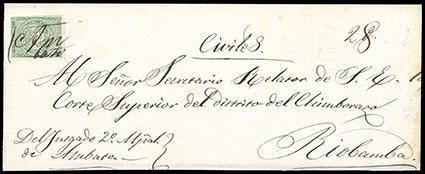 Civiles.
28.
Al Señor Secretario Relator de S. E. la
Corte Superior del distrito del Chimborazo
Del Juzgado 2º Mpal.
de Ambato
Riobamba